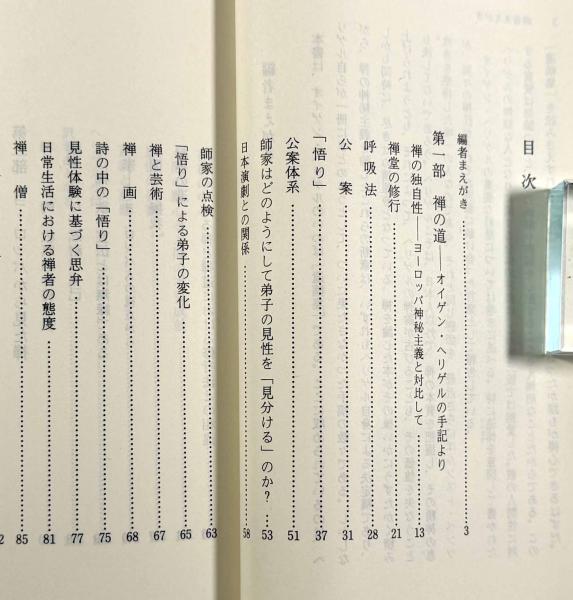 目次
編者まえがき……3
第一部　禅の道――オイゲン・ヘリゲルの手記より
禅の独自性――ヨーロッパ神秘主義と対比して……13
禅堂の修行……21
呼吸法……28
公案……31
「悟り」……37
公案体系……51
師家はどのようにして弟子の見性を「見分ける」のか？……53
日本演劇との関係……58
師家の点検……63
「悟り」による弟子の変化……65
禅と芸術……67
禅画……68
詩の中の「悟り」……75
見性体験に基づく思弁……77
日常生活における禅者の態度……81
禅僧……85